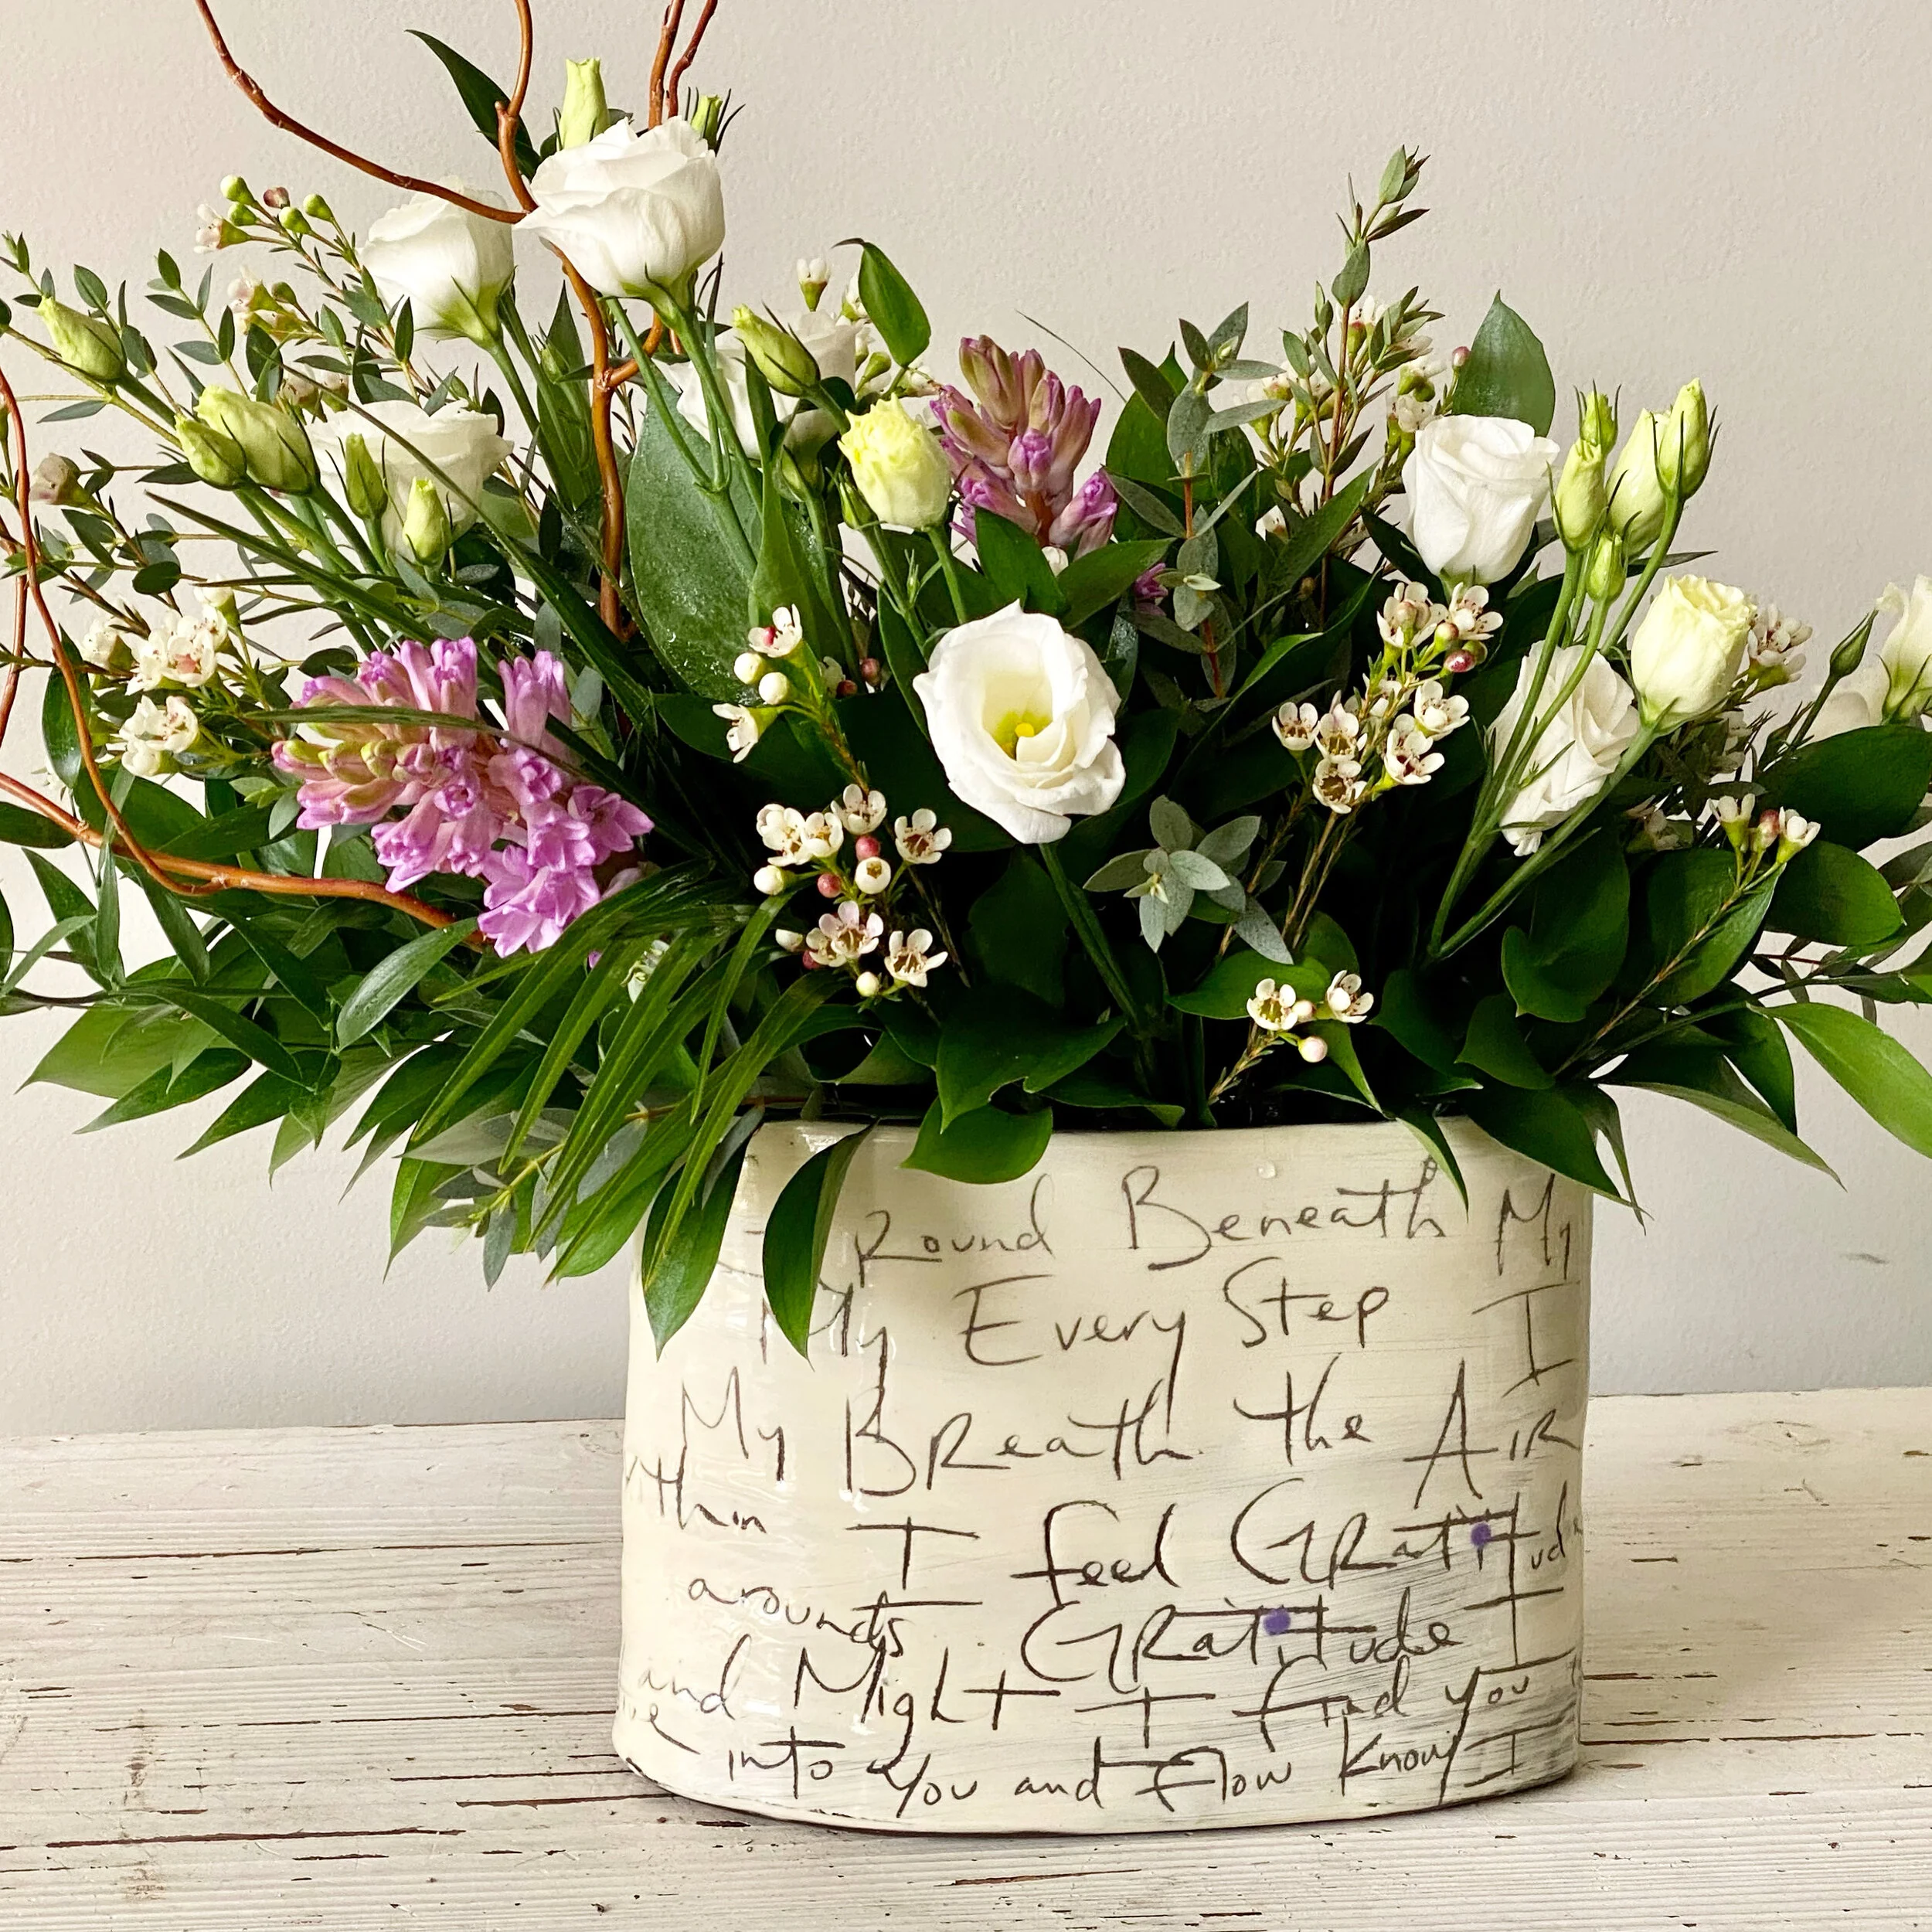 Round Beneath My
My Every Step I
My Breath the AIR
ithin I feel GRatitud
arounds GRatitude I
and Might I find you
into You and Flow Know I